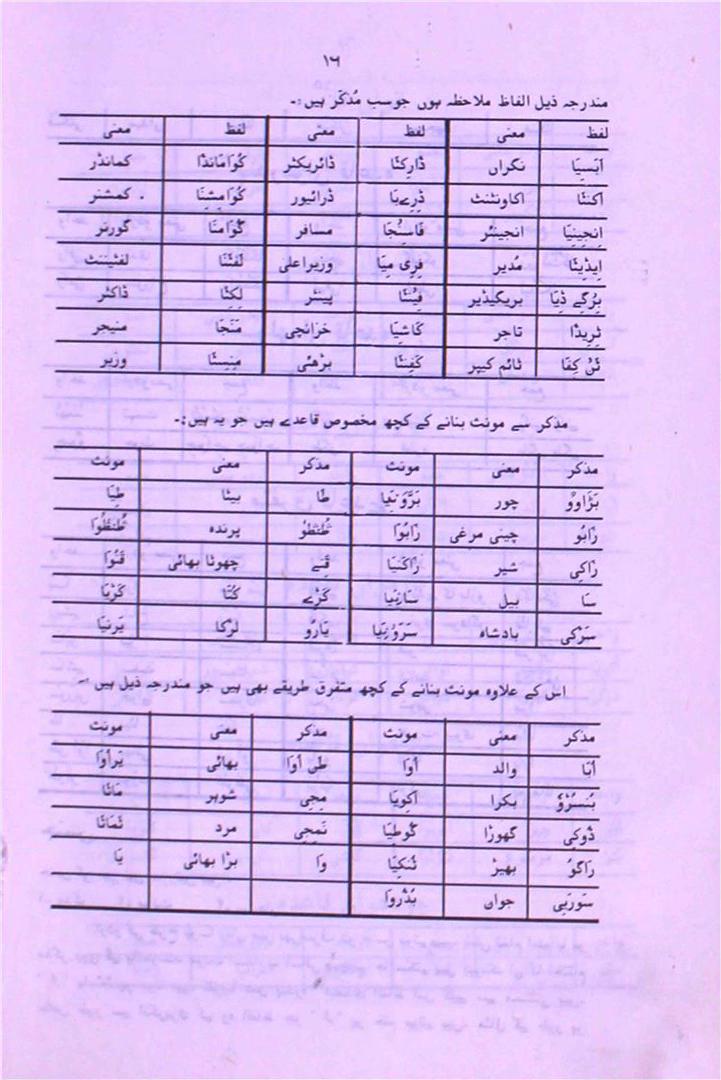 ۱۶
مندرجہ ذیل الفاظ ملاحظہ ہوں جو سب مُذکّر ہیں :۔
لفظ معنی لفظ معنی لفظ معنی
اَبَسِیَا نگراں ڈَارِکِٹَا ڈائریکٹر کُوَامَانْڈَا کمانڈر
اَکَنْٹَا اکاونٹنٹ ڈِرِےبَا ڈرائیور کُوَامِشِنَا کمشنر
اِنجِینِیَا انجینئر فَاسِنْجَا مسافر گُوَامْنَا گورنر
اِیڈِیٹَا مُدیر فِرِی مِیَا وزیراعلی لَفْٹِنَا لفٹیننٹ
بِرُگِے ڈِیَا بریگیڈیر فِیْنْٹَا پینٹر لِکِٹَا ڈاکٹر
ٹِرِیڈَا تاجر کَاشِیَا خزانچی مَنْجَا منیجر
ٹَنْ کِفَا ٹائم کیپر کَفِنْٹَا بڑھئی مِنِسْٹَا وزیر
مذکر سے مونث بنانے کے کچھ مخصوص قاعدے ہیں جو یہ ہیں :۔
مذکر معنی مونث مذکر معنی مونث
بَرَّاوُو چور بَرَّوْنِیَا طَا بیٹا طِیَا
زَابُو چینی مرغی زَابُوَا ظُنْظُو پرندہ ظُنظُوَا
زَاکِی شیر زَاکَنْیَا قَنےِ چھوٹا بھائی قَنْوَا
سَا بیل سَانِیَا کَرْےِ کتّا کَرْیَا
سَرْکِی بادشاہ سَرَوْنِیَا یَارُو لڑکا یَرِنْیَا
اس کے علاوہ مونث بنانے کے کچھ متفرق طریقے بھی ہیں جو مندرجہ ذیل ہیں :۔
مذکر معنی مونث مذکر معنی مونث
اُبَا والد اُوَا طَن اُوَا بھائی یَراُوَا
بُنْسُرُوْ بکرا اَکوِیَا مِجِی شوہر مَاتَا
ڈُوکِی گھوڑا گُوطِیَا نَمِجِی مرد تَمَاتَا
رَاگُوْ بھیڑ تُنْکِیَا وَا بڑا بھائی یَا
سَورَیِی جواں بُدُرْوَا